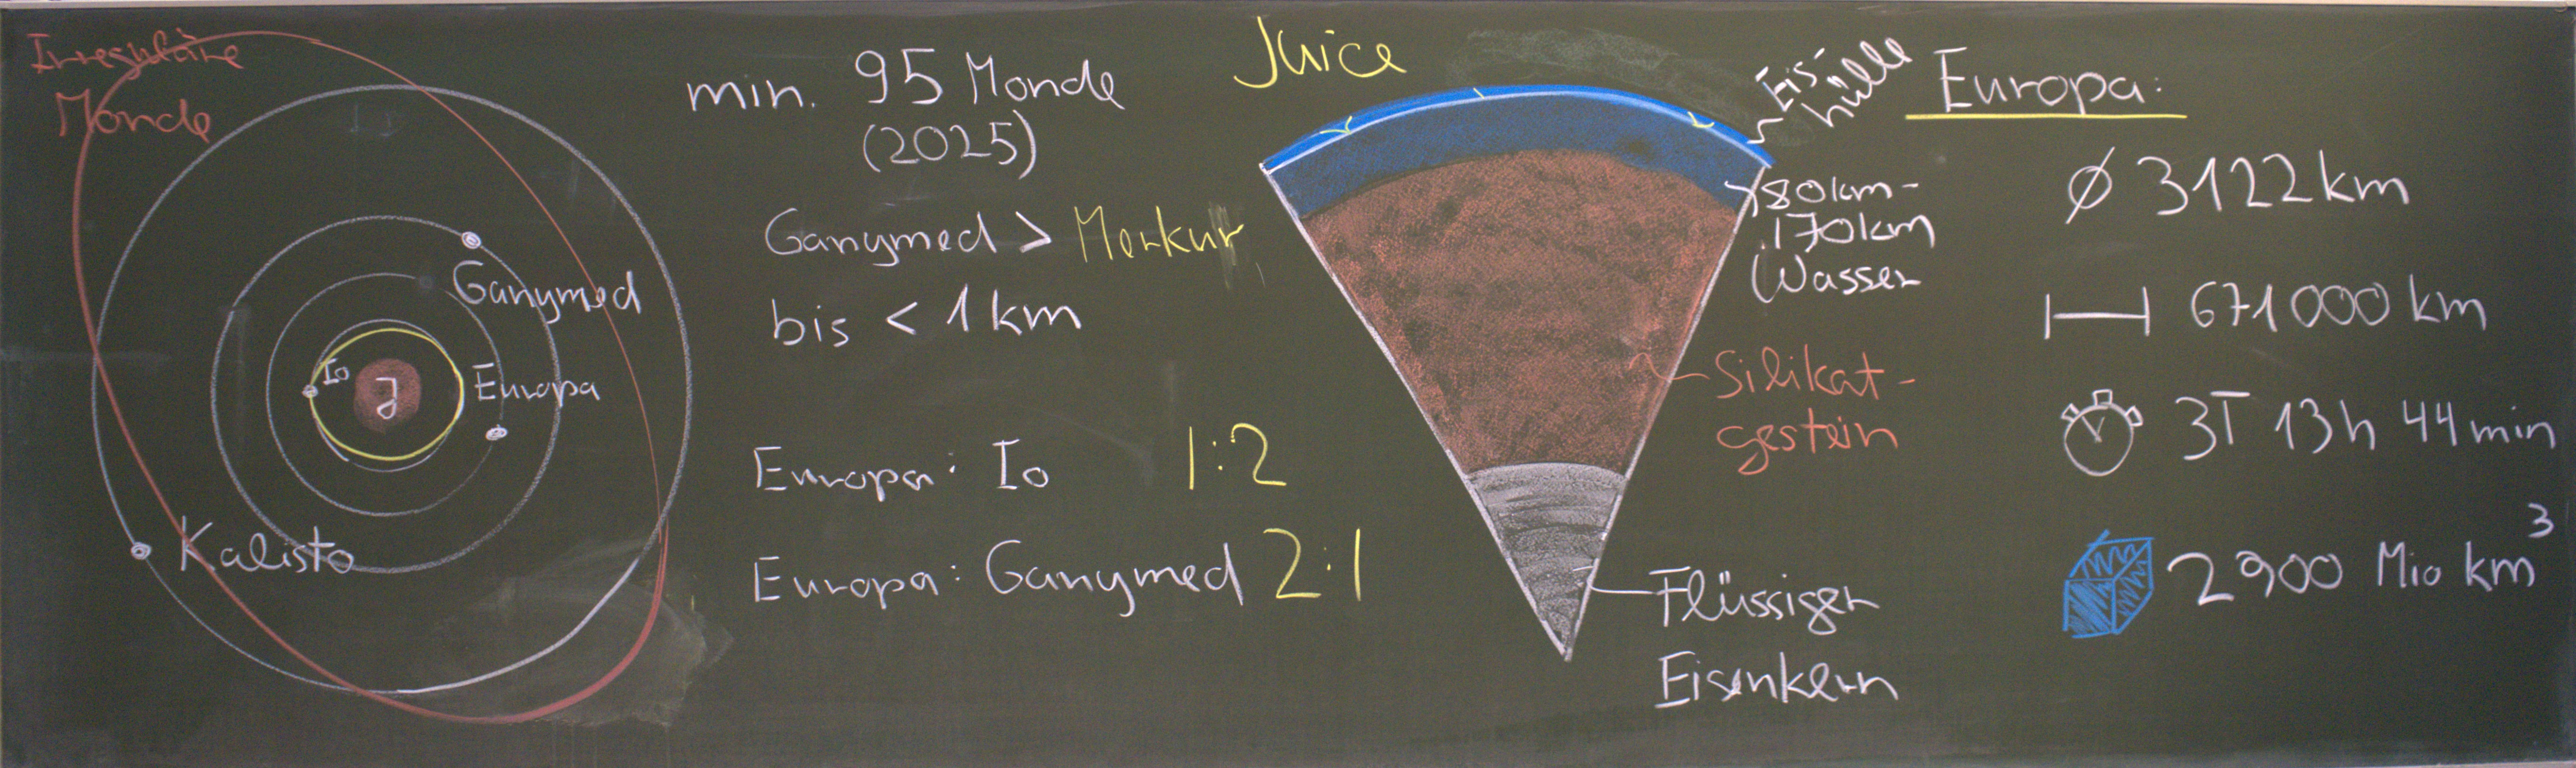 Irreguläre
Monde
Ganymed
Io
J
Europa
Kalisto
min. 95 Monde
(2025)
Ganymed > Merkur
bis < 1 km
Europa : Io 1:2
Europa : Ganymed 2:1
Juice
Eis-
hülle
80km-
170km
Wasser
Silikat-
gestein
Flüssiger
Eisenkern
Europa:
Ø 3122 km
671 000 km
3T 13h 44min
2900 Mio km³